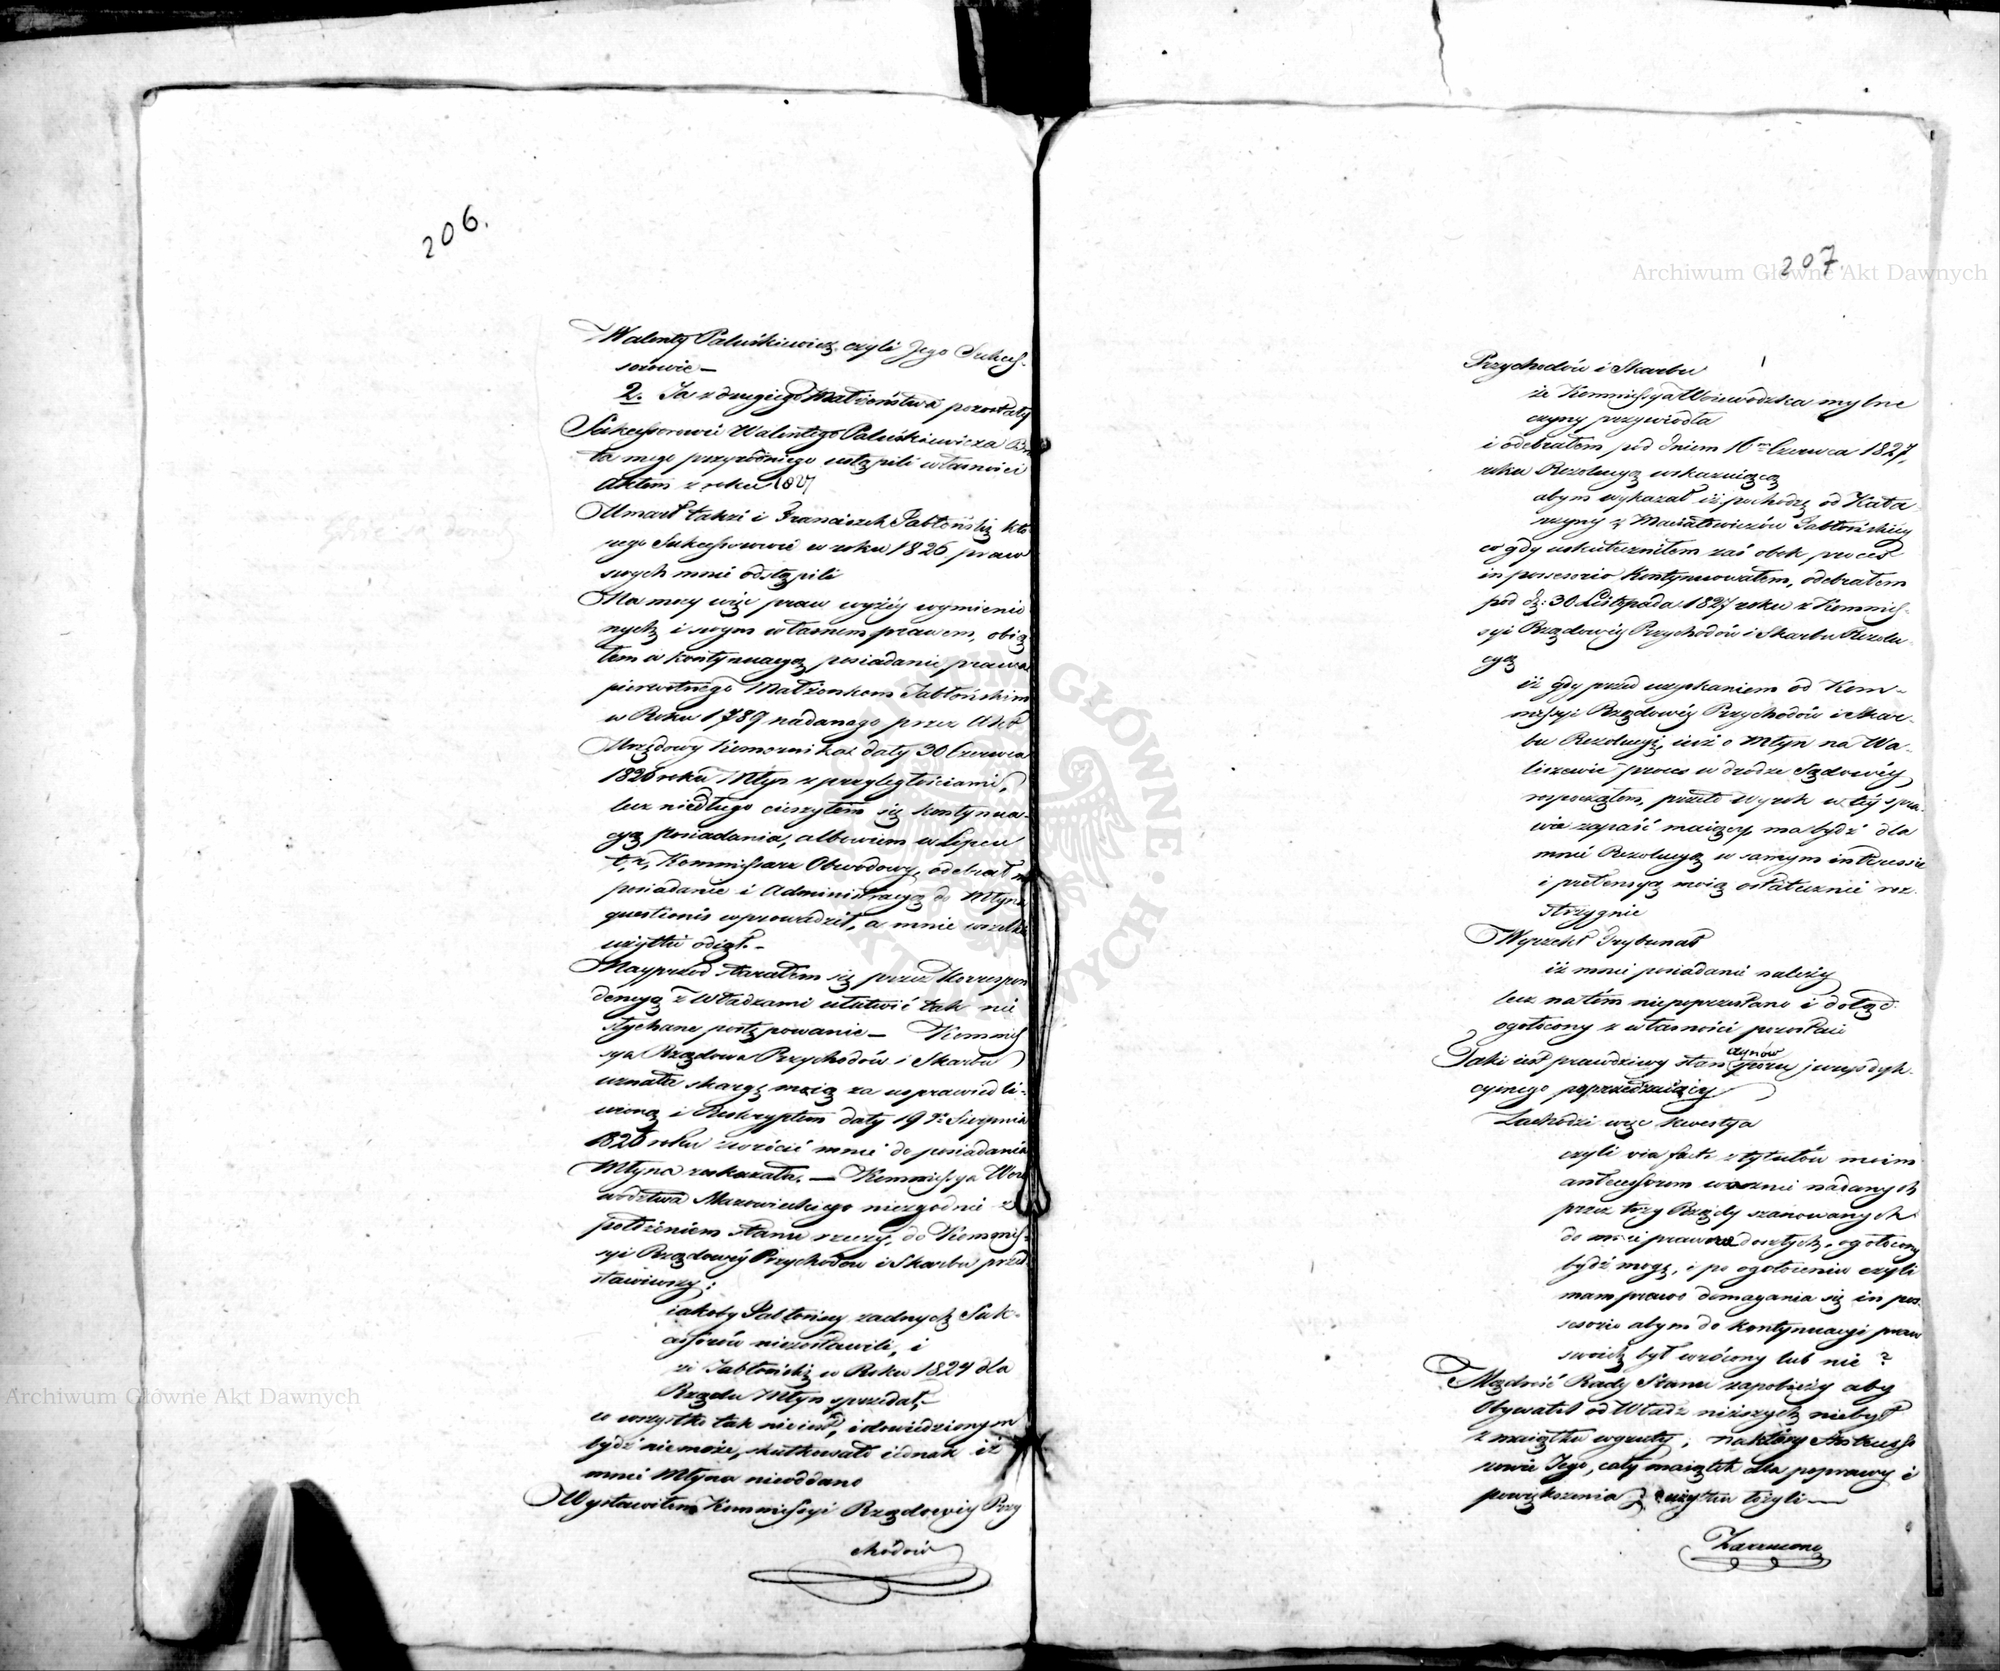 206.
Walenty Paluśkiewicz czyli Jego Sukces-
sorowie —
2. Ja z drugiego Małżeństwa pozostały
Sukcessorowie Walentego Paluśkiewicza Bra
ta mego przyrodniego ustąpili własności
Aktem z roku 1827
Umarł także i Franciszek Jabłoński któ
rego Sukcessorowie w roku 1826 praw
swych mnie odstąpili
Na mocy więc praw wyżéy wymienio
nych i swym własnem prawem, obią
łem w kontynuacyą posiadanie prawa
pierwotnego Małżonkom Jabłońskim
w Roku 1789 nadanego przez Akt
Urzędowy Komornika daty 30 Czerwca
1826 roku Młyn z przyległościami,
lecz niedługo cieszyłem się kontynua-
cyą posiadania, albowiem w Lipcu
t. r. Kommissarz Obwodowy, odebrał mi
posiadanie i Administracyą do Młyna
questionis wprowadził, a mnie wszelkie
użytki odiął. —
Nayprzód starałem się przez Korrespon
dencyą z Władzami ułatwić tak nie
słychane postępowanie — Kommis
sya Rządowa Przychodów i Skarbu
uznała skargę moią za usprawiedli-
wioną i Reskryptem daty 19 Sierpnia
1826 roku zwrócić mnie do posiadania
Młyna rozkazała. — Kommissya Woie
wództwa Mazowieckiego niezgodnie z
położeniem stanu rzeczy, do Kommis-
syi Rządowéy Przychodów i Skarbu przed
stawiwszy:
iakoby Jabłońscy żadnych Suk-
cessorów niezostawili, i
że Jabłoński w Roku 1824 dla
Rządu Młyn sprzedał,
co wszystko tak nie iest, i dowiedzionym
bydź nie może, skutkowało iednak iż
mnie Młyna nieoddano
Wystawiłem Kommissyi Rządowéy Przy
chodów
207.
Przychodów i Skarbu
że Kommissya Woiewódzka mylne
czyny przywiodła
i odebrałem pod dniem 16 Czerwca 1827
roku Rezolucyą wskazuiącą
abym wykazał iż pochodzę od Kata-
rzyny z Jabłońskiéy
co gdy uskuteczniłem zaś obok proces
in possessorio kontynuowałem, odebrałem
pod d: 30 Listopada 1827 roku z Kommis-
syi Rządowéy Przychodów i Skarbu Rezolu-
cyą
iż gdy przed uzyskaniem od Kom-
missyi Rządowéy Przychodów i Skar-
bu Rezolucyi, iuż o Młyn na Wa-
liszewie proces w drodze Sądowéy
rozpocząłem, przeto wyrok w téy spra-
wie zapaść maiący, ma bydź dla
mnie Rezolucyą w samym interessie
i pretensyą moią ostatecznie roz-
strzygnie
Wyrzekł Trybunał
iż mnie posiadanie należy
lecz na tém niepoprzestano i dotąd
ogołocony z własności pozostaię
Taki iest prawdziwy stan czynów sporu jurysdyk-
cyinego poprzedzaiący
Zachodzi więc kwestya
czyli via facti z tytułów moim
antecessorom wiecznie nadanych
przez trzy Rządy szanowanych
do mnie prawnie doszłych, ogołocony
bydź mogę, i po ogołoceniu czyli
mam prawo domagania się in pos-
sessorio abym do kontynuacyi praw
swoich był wrócony lub nie?
Mądrość Rady Stanu zapobieży aby
Obywatel od Władz niższych niebył
z maiątku wyzuty, na który Antecesso
rowie Jego, cały maiątek dla poprawy i
powiększenia użytku łożyli —
Zarzucono
Archiwum Główne Akt Dawnych
Archiwum Główne Akt Dawnych
ARCHIWUM GŁÓWNE AKT DAWNYCH